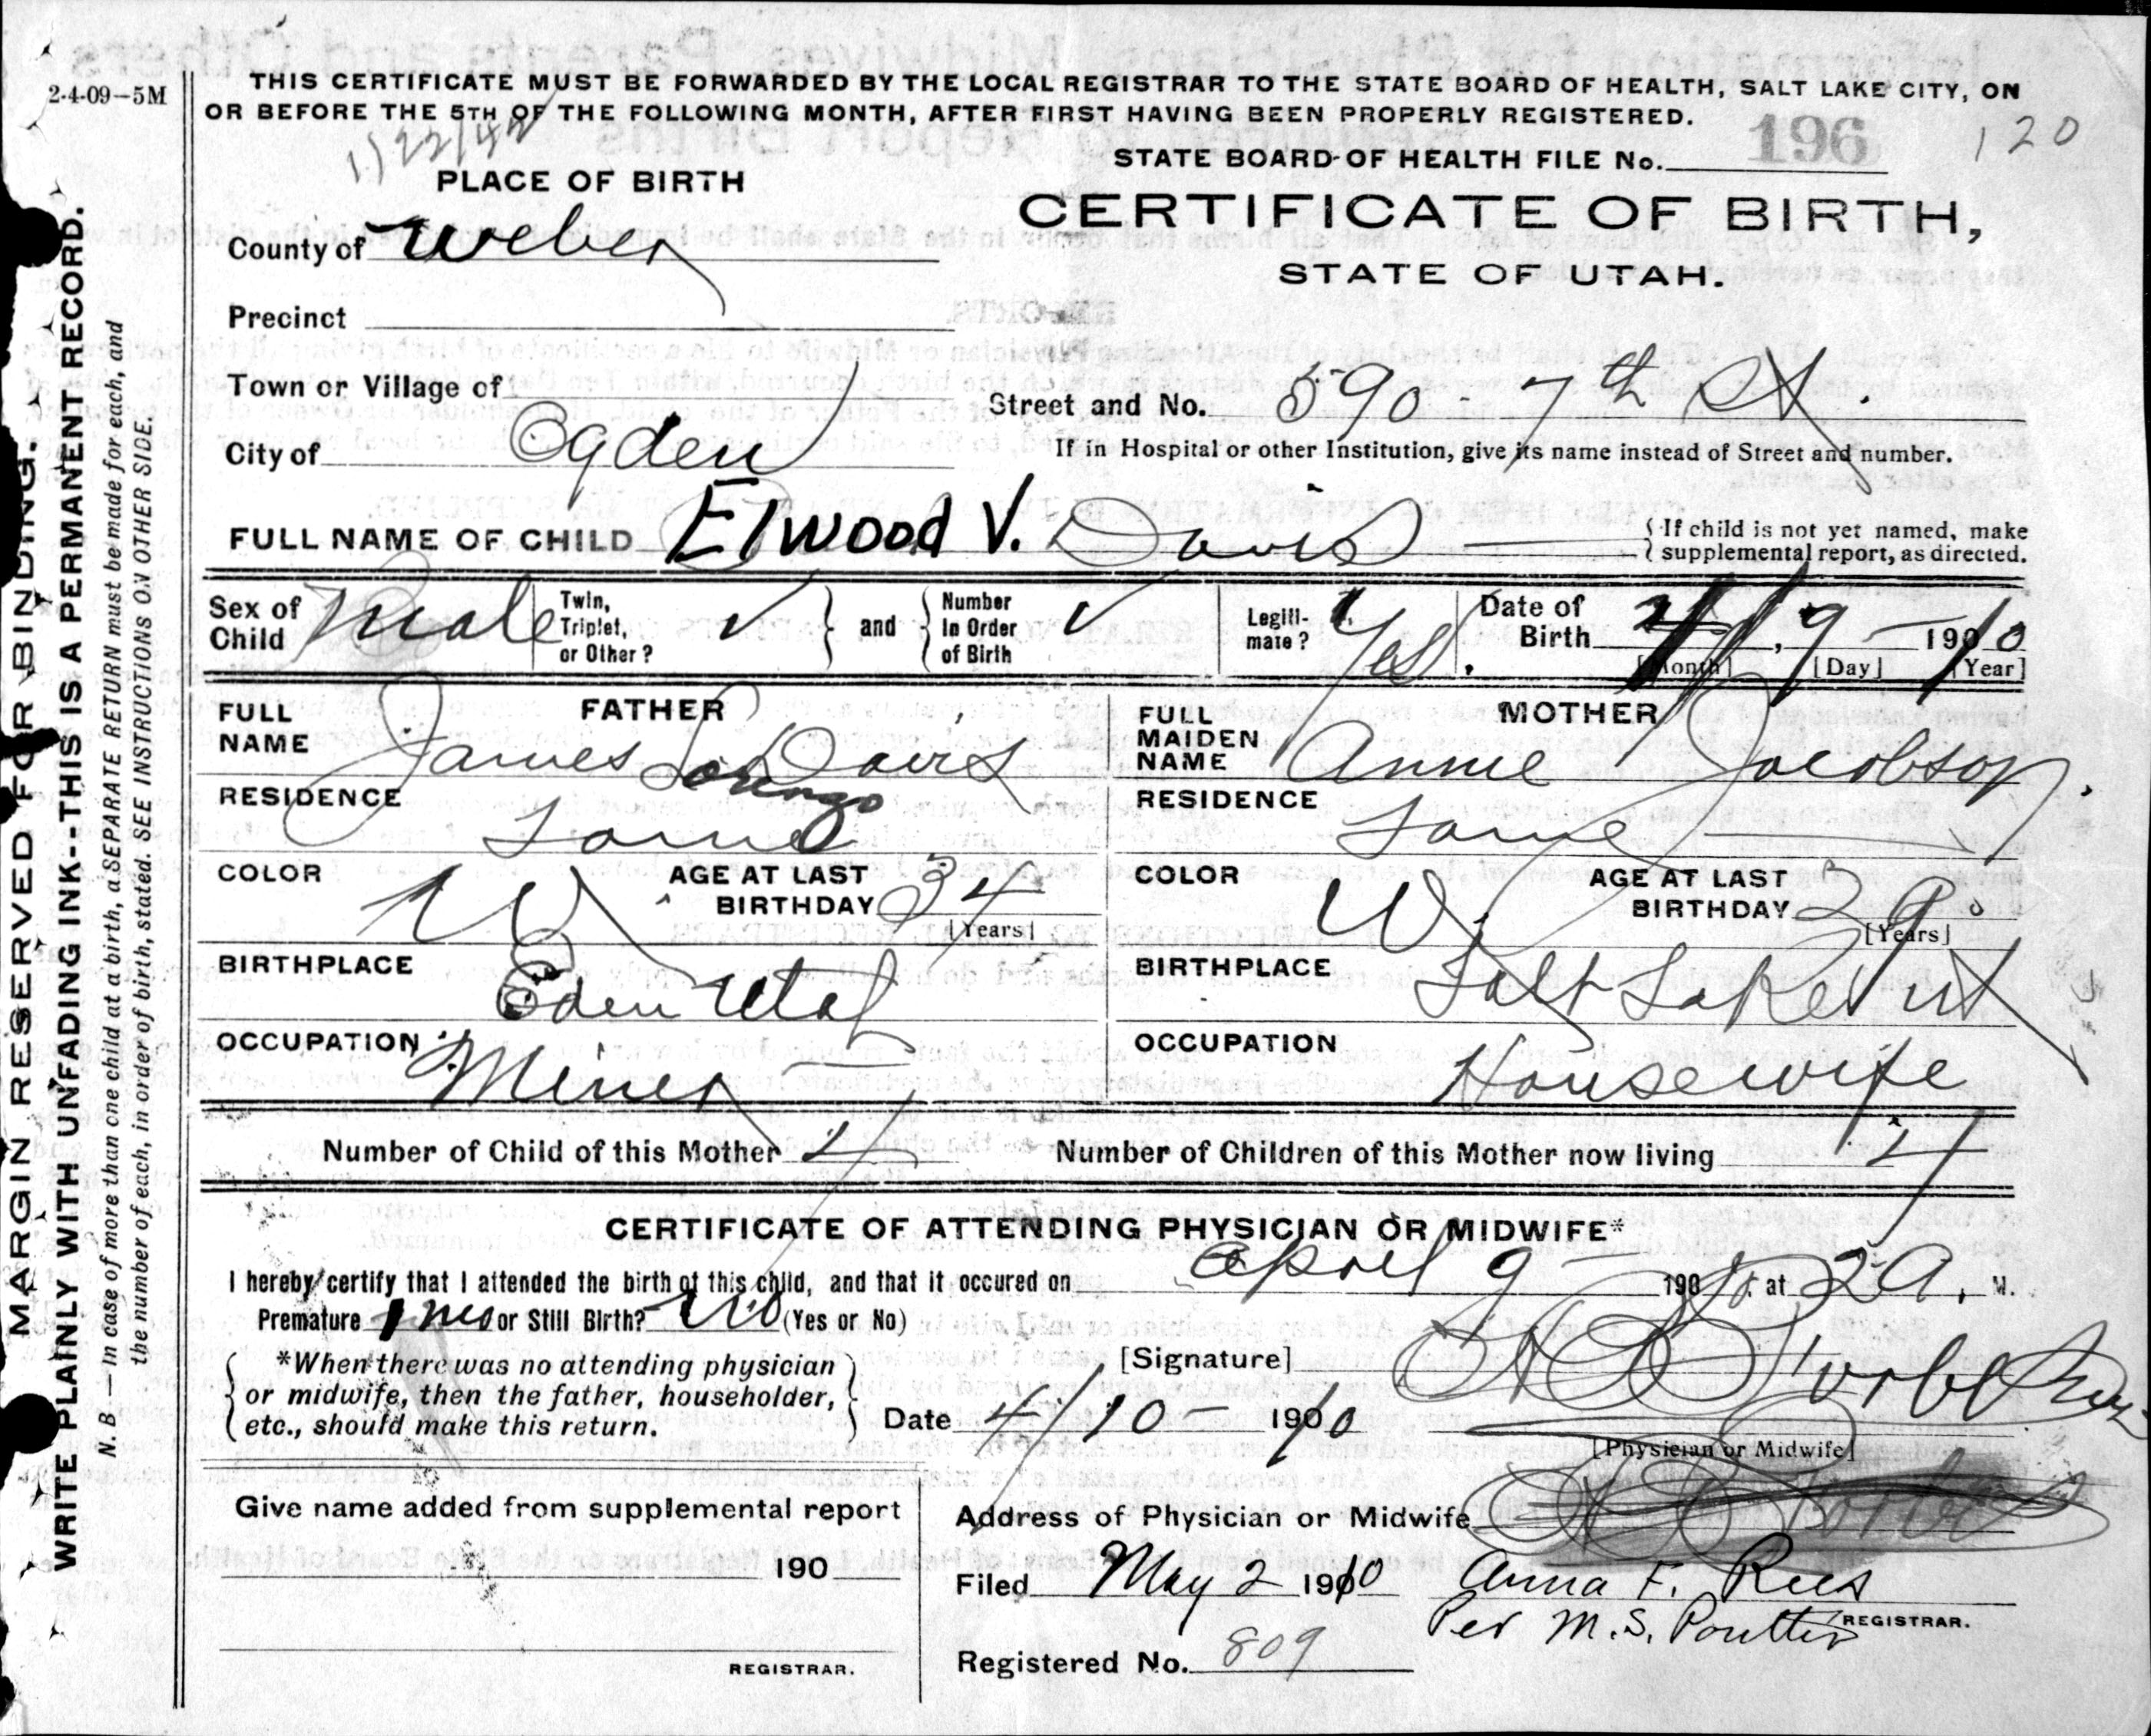 2-4-09–5M
THIS CERTIFICATE MUST BE FORWARDED BY THE LOCAL REGISTRAR TO THE STATE BOARD OF HEALTH, SALT LAKE CITY, ON
OR BEFORE THE 5TH OF THE FOLLOWING MONTH, AFTER FIRST HAVING BEEN PROPERLY REGISTERED.
STATE BOARD OF HEALTH FILE No. 196 120
1/22/42
PLACE OF BIRTH
CERTIFICATE OF BIRTH,
STATE OF UTAH.
County of Weber
Precinct
Town or Village of
Street and No. 590 - 7th St.
City of Ogden
If in Hospital or other Institution, give its name instead of Street and number.
FULL NAME OF CHILD Elwood V. Davis
{ If child is not yet named, make
supplemental report, as directed.
Sex of Child Male
Twin, Triplet, or Other? ✓ } and { Number In Order of Birth ✓
Legitimate? Yes.
Date of Birth 4, 9 - 1910
[Month] [Day] [Year]
FATHER
FULL NAME James Lorenzo Davis
RESIDENCE Same
COLOR W
AGE AT LAST BIRTHDAY 34
[Years]
BIRTHPLACE Eden Utah
OCCUPATION Miner
MOTHER
FULL MAIDEN NAME Annie Jacobson.
RESIDENCE Same
COLOR W.
AGE AT LAST BIRTHDAY 29
[Years]
BIRTHPLACE Salt Lake Ut
OCCUPATION Housewife
Number of Child of this Mother 4
Number of Children of this Mother now living 4
CERTIFICATE OF ATTENDING PHYSICIAN OR MIDWIFE*
I hereby certify that I attended the birth of this child, and that it occured on April 9 - 1910. at 2 A. M.
Premature 1 mo or Still Birth? No (Yes or No)
*When there was no attending physician
or midwife, then the father, householder,
etc., should make this return.
[Signature]
Date 4/10 - 1910
[Physician or Midwife]
Give name added from supplemental report
190
REGISTRAR.
Address of Physician or Midwife
Filed May 2 1910
Anna F. Rees
Per M.S. Poulter
REGISTRAR.
Registered No. 809
MARGIN RESERVED FOR BINDING.
WRITE PLAINLY WITH UNFADING INK--THIS IS A PERMANENT RECORD.
N. B.—In case of more than one child at a birth, a SEPARATE RETURN must be made for each, and
the number of each, in order of birth, stated. SEE INSTRUCTIONS ON OTHER SIDE.